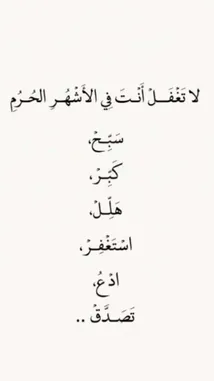 لا تَغْفَـــلْ أَنْـتَ فِي الأَشْهُـرِ الحُـرُمِ
سَبِّـحْ،
كَبِّـرْ،
هَلِّـلْ،
اسْتَغْفِـرْ،
ادْعُ،
تَصَـدَّقْ ..